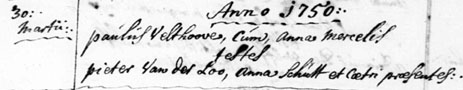 Anno 1750:
30:
Martii: paulus Velthoove, Cum, Anna Marcelis
testes
pieter Van der Loo, Anna Schutt et Cætri præsentes: